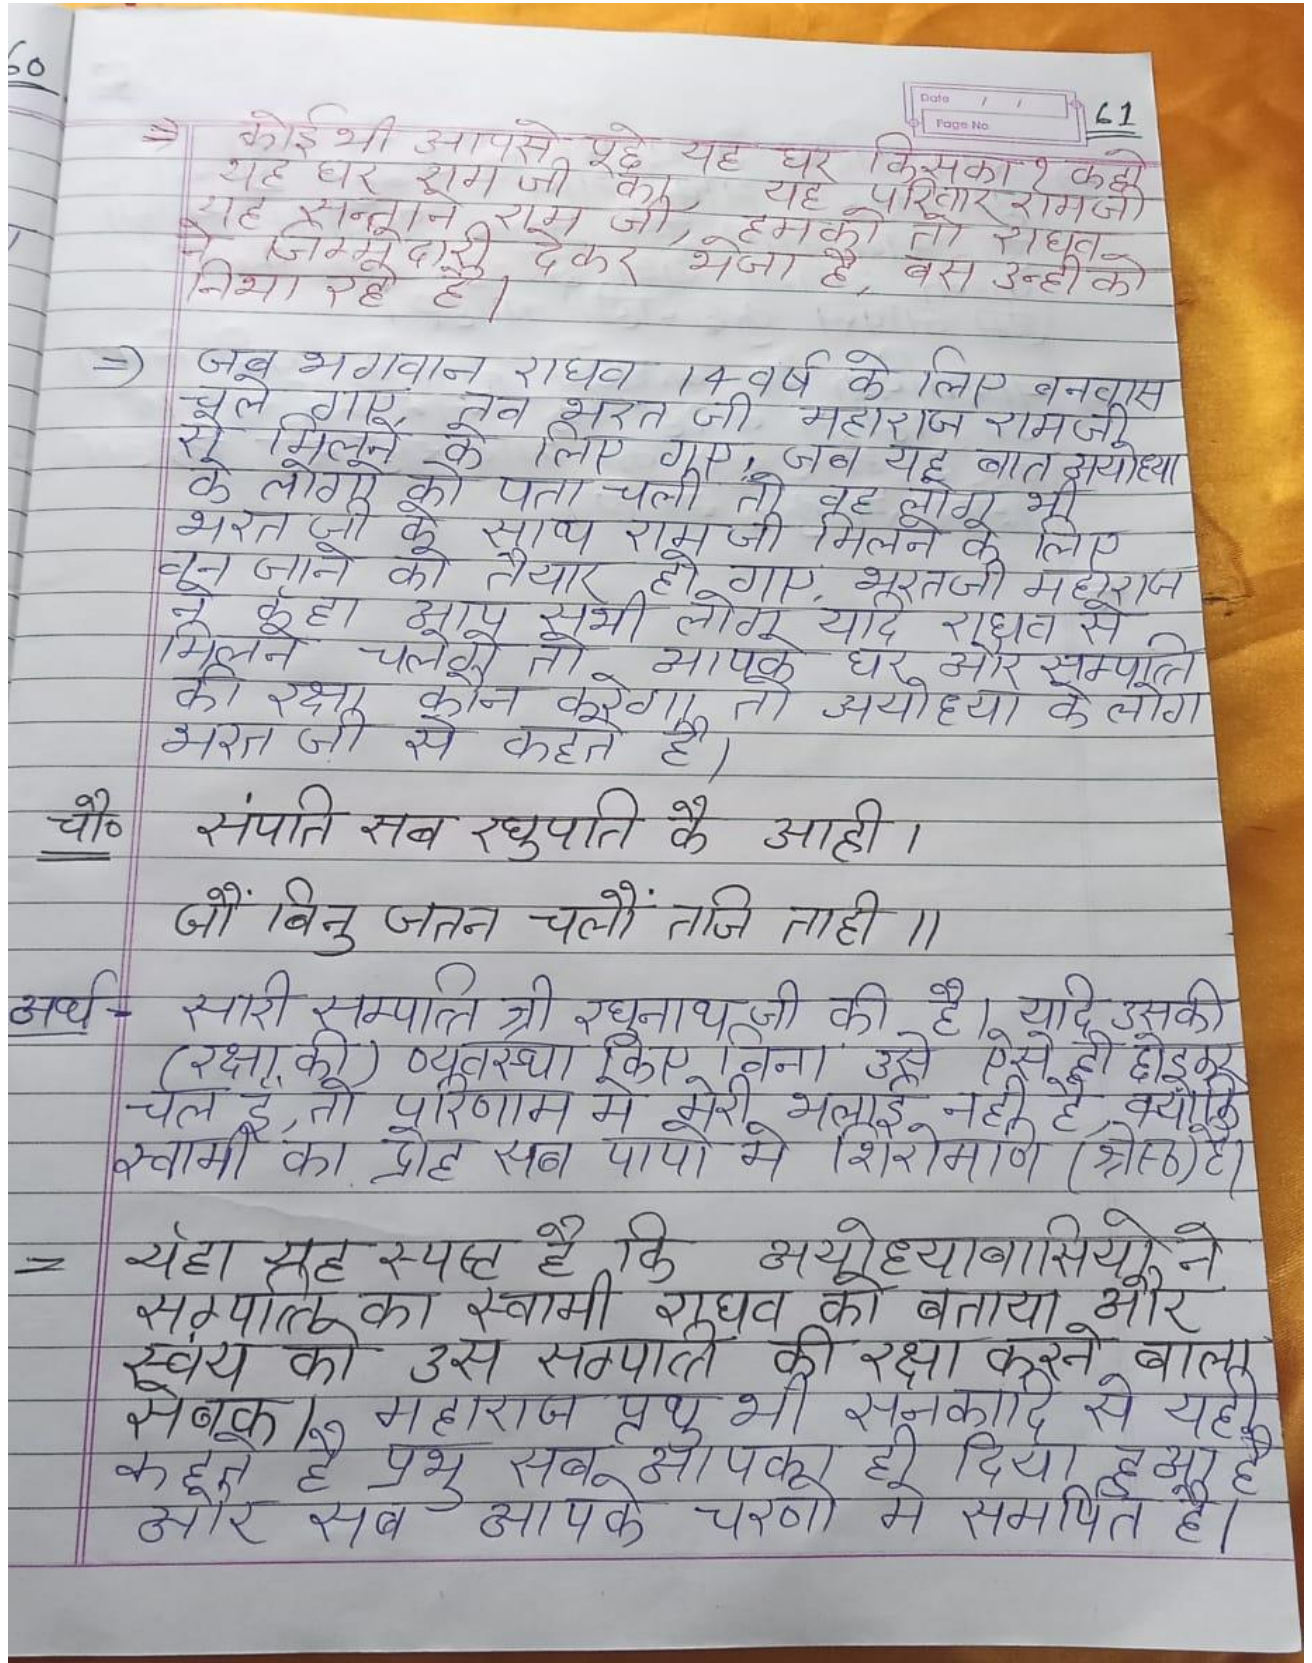 60
Date / /
Page No
61
⇒ कोई भी आपसे पूछे यह घर किसका? कहो
यह घर राम जी का, यह परिवार रामजी
यह सन्तान राम जी, हमको तो राघव
ने जिम्मेदारी देकर भेजा है, बस उन्ही को
निभा रहे है।
⇒ जब भगवान राघव 14 वर्ष के लिए बनवास
चले गाए, तब भरत जी महाराज रामजी
से मिलने के लिए गए, जब यह बात अयोध्या
के लोगो को पता चली तो वह लोग भी
भरत जी के साथ राम जी मिलने के लिए
वन जाने को तैयार हो गाए, भरतजी महाराज
ने कहा आप सभी लोग यदि राघव से
मिलने चलेके तो आपके घर और सम्पत्ति
की रक्षा कौन करेगा, तो अयोध्या के लोग
भरत जी से कहते है।
चौ० संपति सब रघुपति कै आही।
जौं बिनु जतन चलौं तजि ताही॥
अर्थ - सारी सम्पत्ति श्री रघुनाथ जी की है। यदि उसकी
(रक्षा की) व्यवस्था किए बिना उसे ऐसे ही छोड़कर
चल दूं, तो परिणाम मे मेरी भलाई नही है, क्योंकि
स्वामी का द्रोह सब पापो मे शिरोमणि (श्रेस्ठ) है।
= यंहा यह स्पष्ट है कि अयोध्याबासियो ने
सम्पत्ति का स्वामी राघव को बताया और
स्वंय को उस सम्पत्ति की रक्षा करने बाला
सेबक। महाराज पृथु भी सनकादि से यही
कहते है प्रभु सब आपका ही दिया हुआ है
और सब आपके चरणो मे समर्पित है।